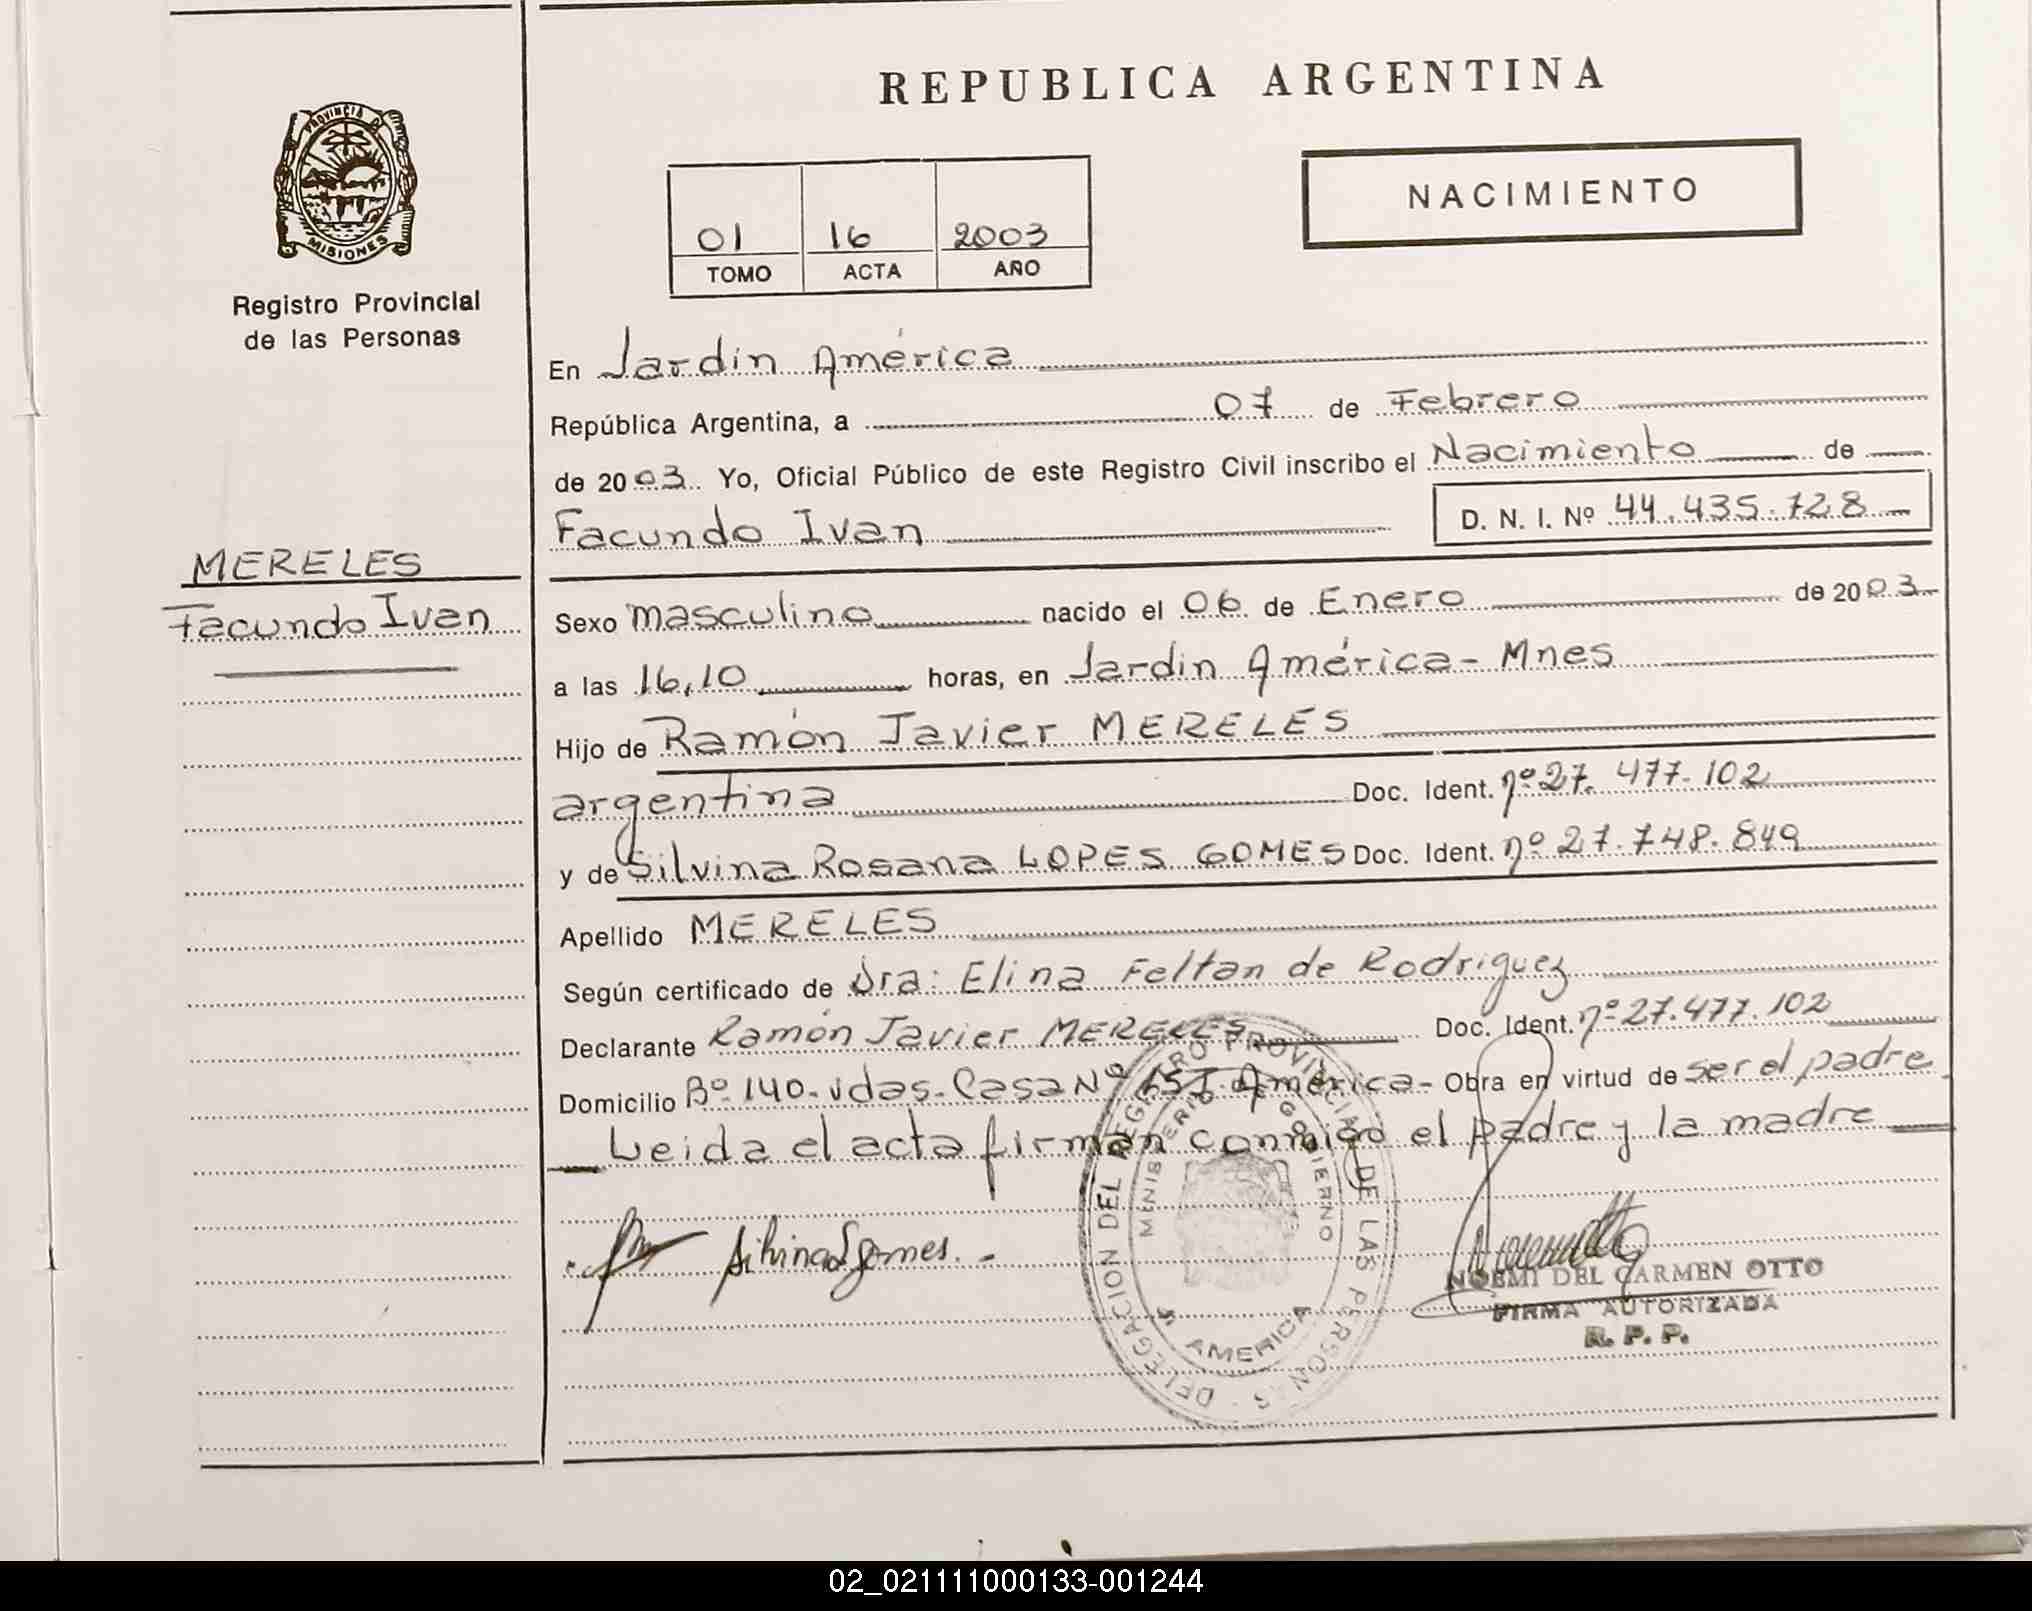 REPUBLICA ARGENTINA
PROVINCIA D
MISIONES
Registro Provincial
de las Personas
NACIMIENTO
01 16 2003
TOMO ACTA AÑO
En Jardin América
República Argentina, a 07 de Febrero
de 2003. Yo, Oficial Público de este Registro Civil inscribo el Nacimiento de
Facundo Ivan D. N. I. Nº 44.435.728
MERELES
Facundo Ivan
Sexo masculino nacido el 06 de Enero de 2003
a las 16,10 horas, en Jardin América - Mnes
Hijo de Ramón Javier MERELES
argentina Doc. Ident. nº 27.477.102
y de Silvina Rosana LOPES GOMES Doc. Ident. nº 27.748.849
Apellido MERELES
Según certificado de Dra: Elina Feltan de Rodriguez
Declarante Ramón Javier MERELES Doc. Ident. nº 27.477.102
Domicilio Bº 140. vdas. Casa Nº América - Obra en virtud de ser el padre
Leida el acta firman conmigo el padre y la madre
Silvina Gomes.
DELEGACION DEL REGISTRO PROVINCIAL DE LAS PERSONAS
MINISTERIO GOBIERNO
AMERICA
NOEMI DEL CARMEN OTTO
FIRMA AUTORIZADA
R. P. P.
02_021111000133-001244